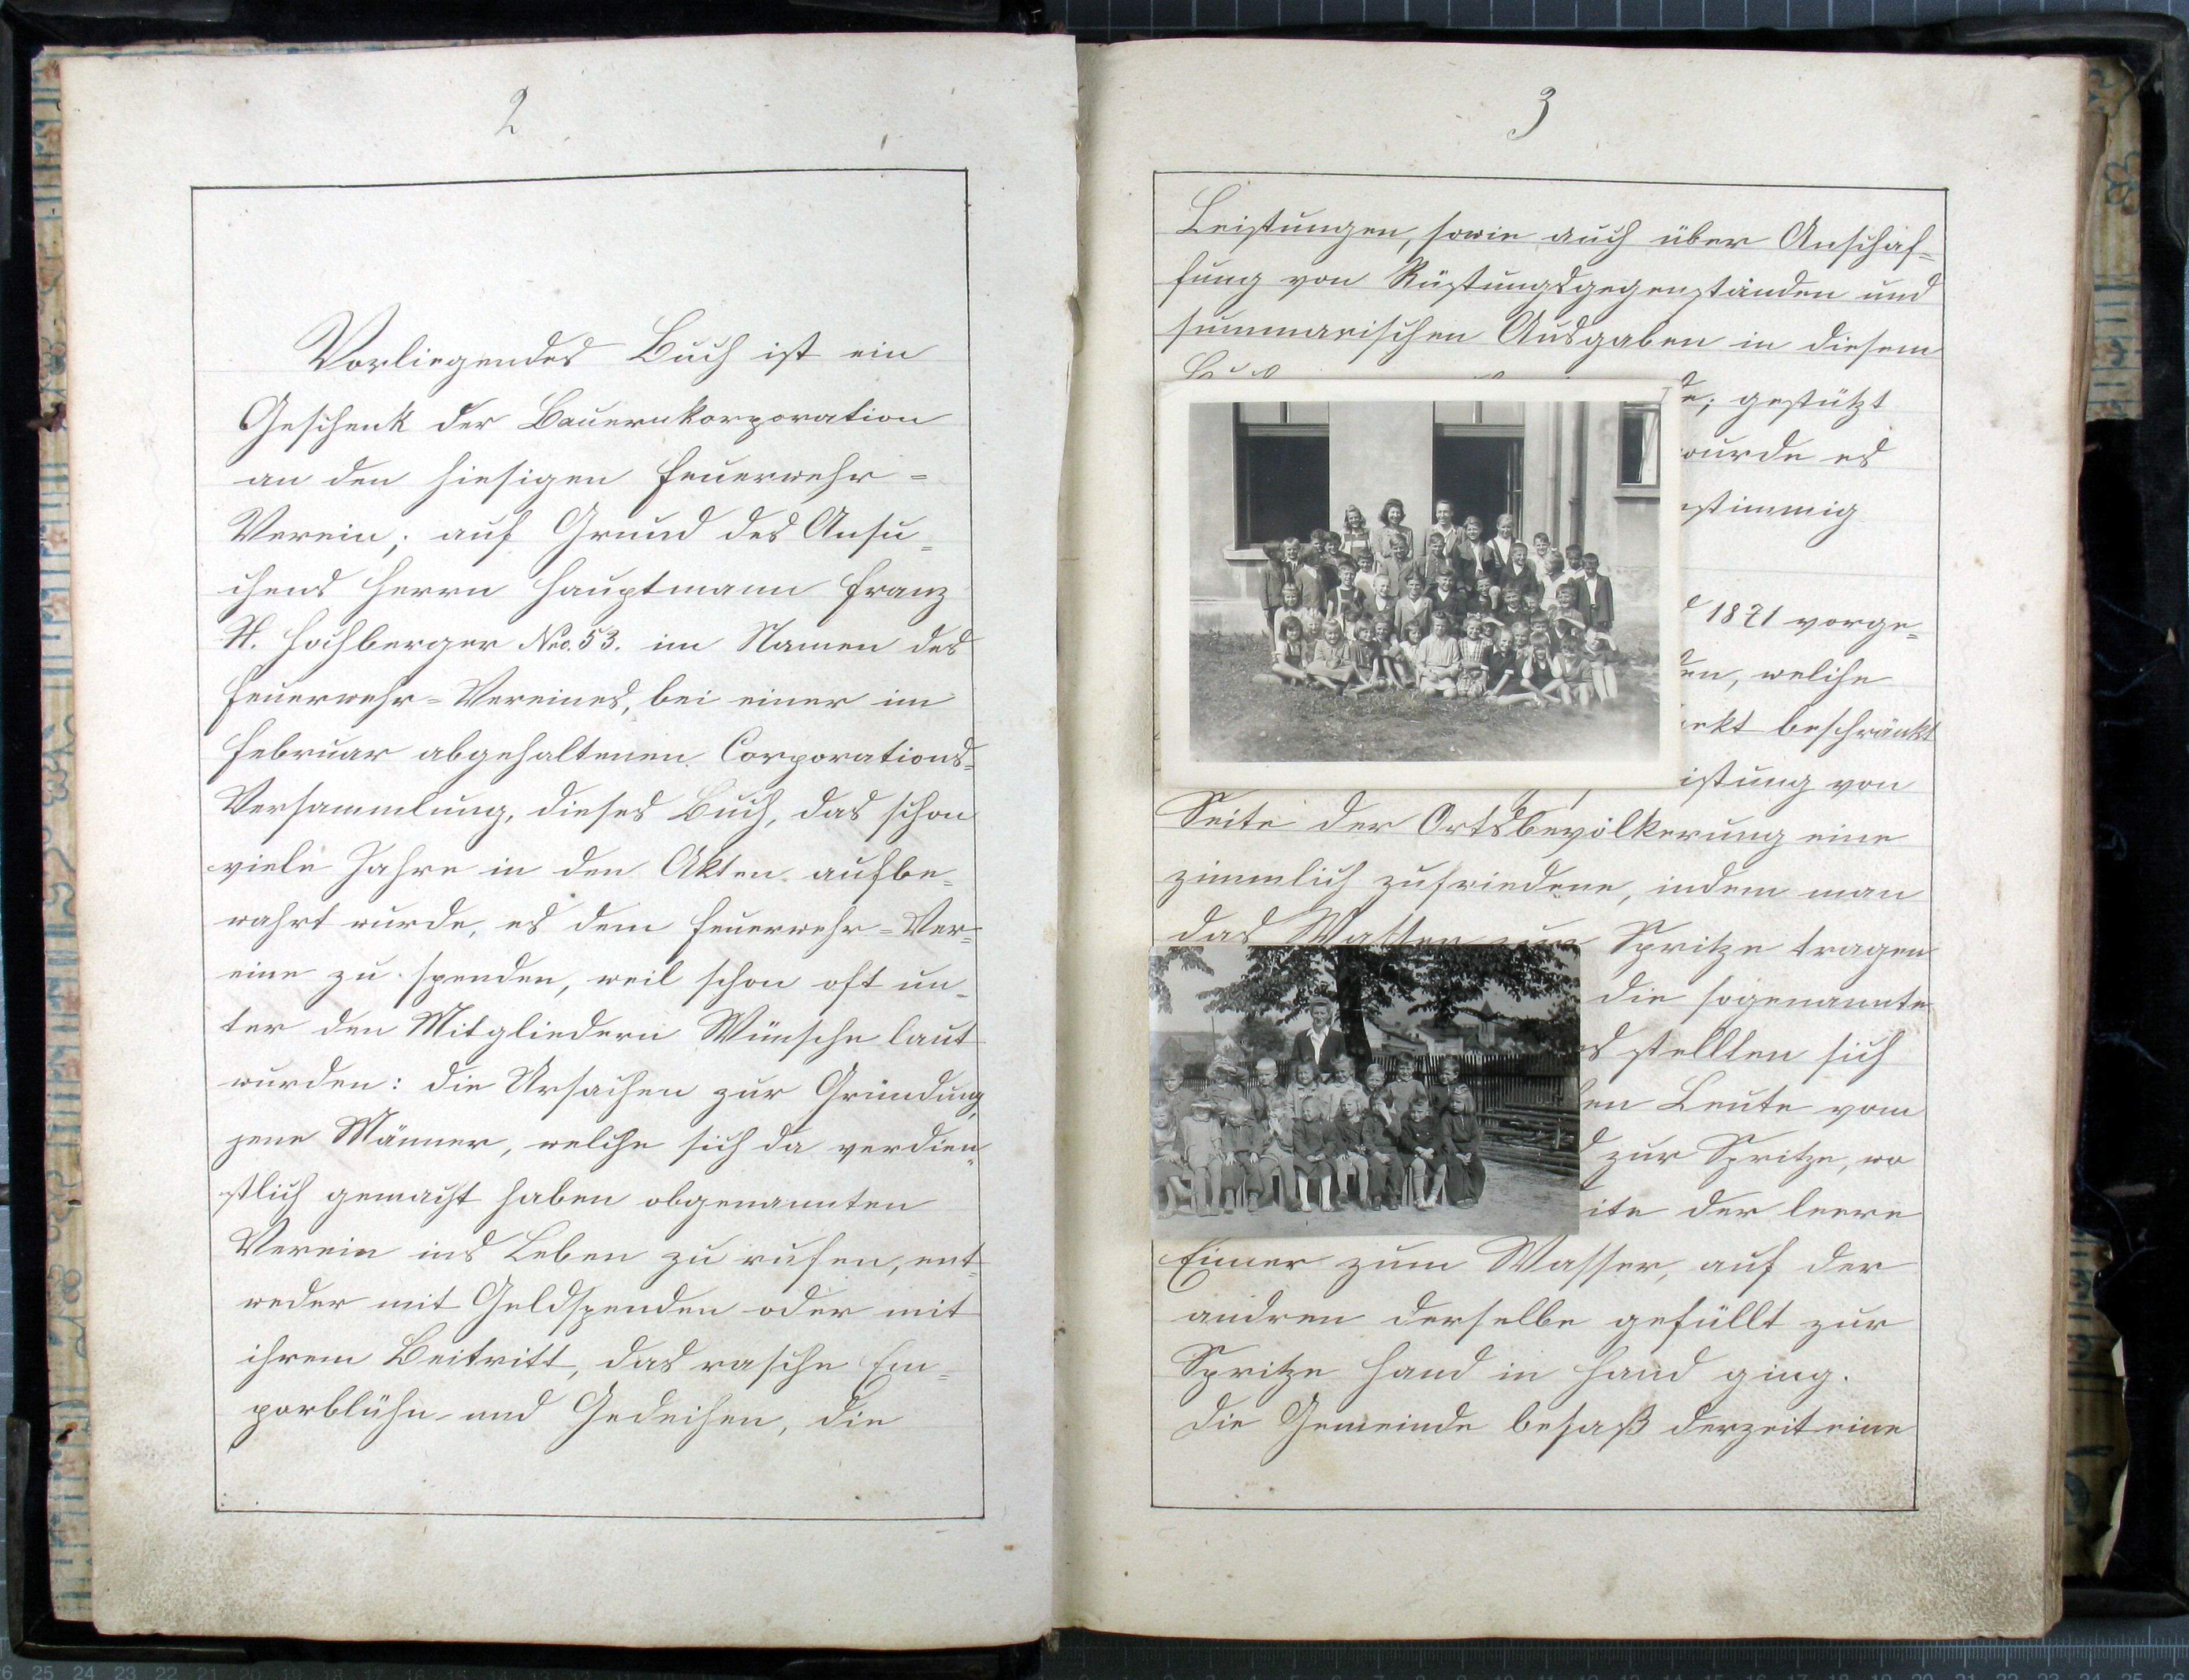 2
Vorliegendes Buch ist ein
Geschenk der Bauernkorporation
an den hiesigen Feuerwehr=
Verein; auf Grund des Ansu=
chens Herrn Hauptmann Franz
H. Hochberger Nro. 53. im Namen des
Feuerwehr=Vereines, bei einer im
Februar abgehaltenen Corporations=
Versammlung, dieses Buch, das schon
viele Jahre in den Akten aufbe=
wahrt wurde, es dem Feuerwehr=Ver=
eine zu spenden, weil schon oft un=
ter den Mitgliedern Wünsche laut
wurden: die Ursachen zur Gründung,
jene Männer, welche sich da verdien=
stlich gemacht haben obgenannten
Verein ins Leben zu rufen, ent=
weder mit Geldspenden oder mit
ihrem Beitritt, das rasche Em=
porblühn und Gedeihen, die
3
Leistungen, sowie auch über Anschaf=
fung von Rüstungsgegenständen und
summarischen Ausgaben in diesem
e; gestützt
wurde es
stimmig
1871 vorge=
en, welche
rkt beschränkt
istung von
Seite der Ortsbevölkerung eine
zimmlich zufriedene, indem man
das Wasser zur Spritze tragen
die sogenannte
stellten sich
en Leute vom
zur Spritze, wo
ite der leere
Eimer zum Wasser, auf der
andren derselbe gefüllt zur
Spritze Hand in Hand ging.
Die Gemeinde besaß derzeit eine